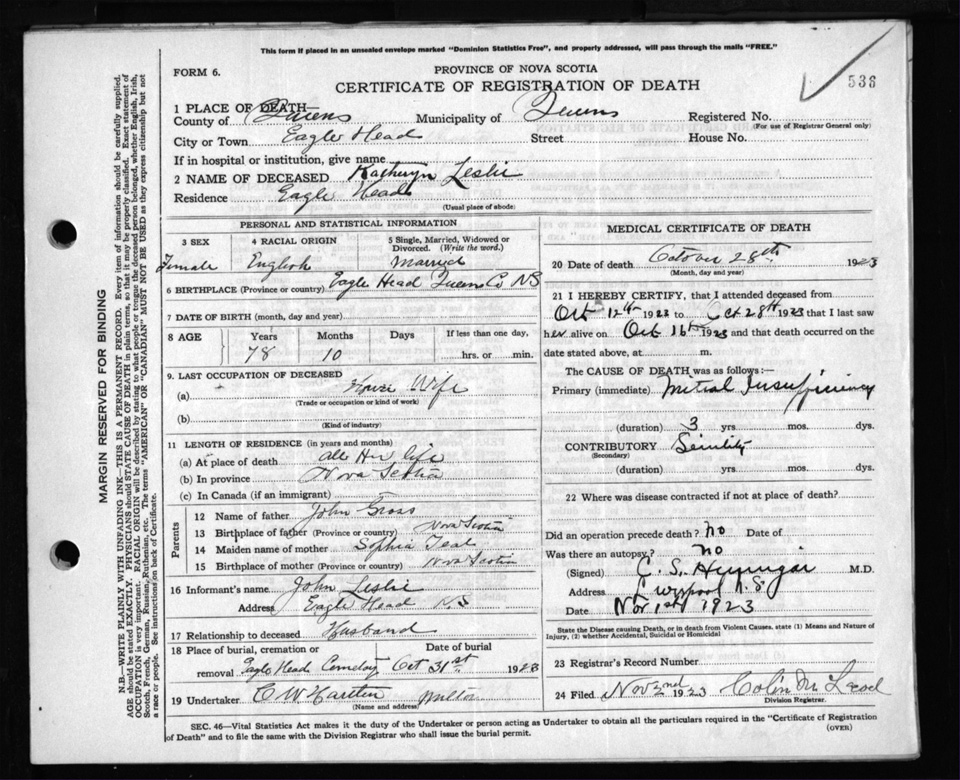 This form if placed in an unsealed envelope marked "Dominion Statistics Free", and properly addressed, will pass through the mails "FREE."
FORM 6.
PROVINCE OF NOVA SCOTIA
CERTIFICATE OF REGISTRATION OF DEATH
536
1 PLACE OF DEATH—
County of Queens Municipality of Queens Registered No.
(For use of Registrar General only)
City or Town Eagle Head Street House No.
If in hospital or institution, give name
2 NAME OF DECEASED Kathryn Leslie
Residence Eagle Head
(Usual place of abode)
PERSONAL AND STATISTICAL INFORMATION
3 SEX 4 RACIAL ORIGIN 5 Single, Married, Widowed or Divorced. (Write the word.)
Female English Married
6 BIRTHPLACE (Province or country) Eagle Head Queens Co NS
7 DATE OF BIRTH (month, day and year)
8 AGE Years Months Days If less than one day,
78 10 hrs. or min.
9. LAST OCCUPATION OF DECEASED
(a) House Wife
(Trade or occupation or kind of work)
(b)
(Kind of industry)
11 LENGTH OF RESIDENCE (in years and months)
(a) At place of death all Her life
(b) In province Nova Scotia
(c) In Canada (if an immigrant)
Parents
12 Name of father John Gross
13 Birthplace of father (Province or country) Nova Scotia
14 Maiden name of mother Sophia Teal
15 Birthplace of mother (Province or country) Nova Scotia
16 Informant's name John Leslie
Address Eagle Head NS
17 Relationship to deceased Husband
18 Place of burial, cremation or removal Date of burial
Eagle Head Cemetery Oct 31st 1923
19 Undertaker C W
(Name and address)
MEDICAL CERTIFICATE OF DEATH
20 Date of death October 28th 1923
(Month, day and year)
21 I HEREBY CERTIFY, that I attended deceased from
Oct 12th 1923 to Oct 28th 1923 that I last saw
her alive on Oct 16th 1923 and that death occurred on the
date stated above, at m.
The CAUSE OF DEATH was as follows:—
Primary (immediate) Mitral Insufficiency
(duration) 3 yrs. mos. dys.
CONTRIBUTORY Senility
(Secondary)
(duration) yrs. mos. dys.
22 Where was disease contracted if not at place of death?
Did an operation precede death? No Date of
Was there an autopsy? No
(Signed) C. S. M.D.
Address Liverpool N.S.
Date Nov 1st 1923
State the Disease causing Death, or in death from Violent Causes, state (1) Means and Nature of
Injury, (2) whether Accidental, Suicidal or Homicidal
23 Registrar's Record Number
24 Filed Nov 2nd 1923 Colin Mc Leod
Division Registrar.
SEC. 46—Vital Statistics Act makes it the duty of the Undertaker or person acting as Undertaker to obtain all the particulars required in the "Certificate of Registration
of Death" and to file the same with the Division Registrar who shall issue the burial permit. (OVER)
MARGIN RESERVED FOR BINDING
N.B.—WRITE PLAINLY WITH UNFADING INK—THIS IS A PERMANENT RECORD. Every item of information should be carefully supplied.
AGE should be stated EXACTLY. PHYSICIANS should STATE CAUSE OF DEATH in plain terms, so that it may be properly classified. Exact statement of
OCCUPATION is very important. RACIAL ORIGIN will be described by stating to what people or tongue the deceased person belonged, whether English, Irish,
Scotch, French, German, Russian, Ruthenian, etc. The terms "AMERICAN" or "CANADIAN" MUST NOT BE USED as they express citizenship but not
a race or people. See instructions on back of Certificate.